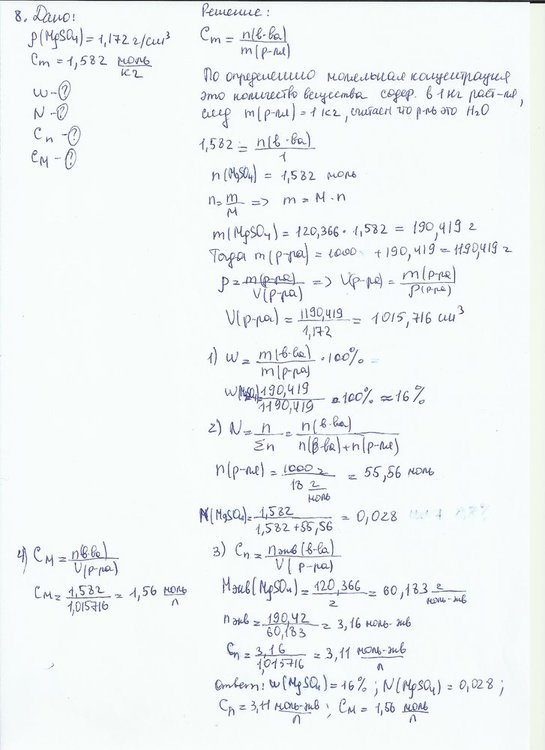 8. Дано:
ρ(MgSO4) = 1,172 г/см³
Cm = 1,582 моль/кг
ω - ?
N - ?
Cн - ?
CM - ?
Решение:
Cm = n(в-ва)/m(р-ля)
По определению моляльная концентрация
это количество вещества содер. в 1 кг раст-ля,
след m(р-ля) = 1 кг, считаем что р-ль это H2O
1,582 = n(в-ва)/1
n(MgSO4) = 1,582 моль
n = m/M => m = M · n
m(MgSO4) = 120,366 · 1,582 = 190,419 г
Тогда m(р-ра) = 1000 + 190,419 = 1190,419 г
ρ = m(р-ра)/V(р-ра) => V(р-ра) = m(р-ра)/ρ(р-ра)
V(р-ра) = 1190,419/1,172 = 1015,716 см³
1) ω = m(в-ва)/m(р-ра) · 100% =
ω(MgSO4) = 190,419/1190,419 · 100% ≈ 16%
2) N = n/Σn = n(в-ва)/n(в-ва)+n(р-ля)
n(р-ля) = 1000 г/18 г/моль = 55,56 моль
N(MgSO4) = 1,582/1,582+55,56 = 0,028
3) Cн = nэкв(в-ва)/V(р-ра)
Mэкв(MgSO4) = 120,366/2 = 60,183 г/моль-экв
nэкв = 190,42/60,183 = 3,16 моль-экв
Cн = 3,16/1,015716 = 3,11 моль-экв/л
4) CM = n(в-ва)/V(р-ра)
CM = 1,582/1,015716 = 1,56 моль/л
Ответ: ω(MgSO4) = 16%; N(MgSO4) = 0,028;
Cн = 3,11 моль-экв/л; CM = 1,56 моль/л